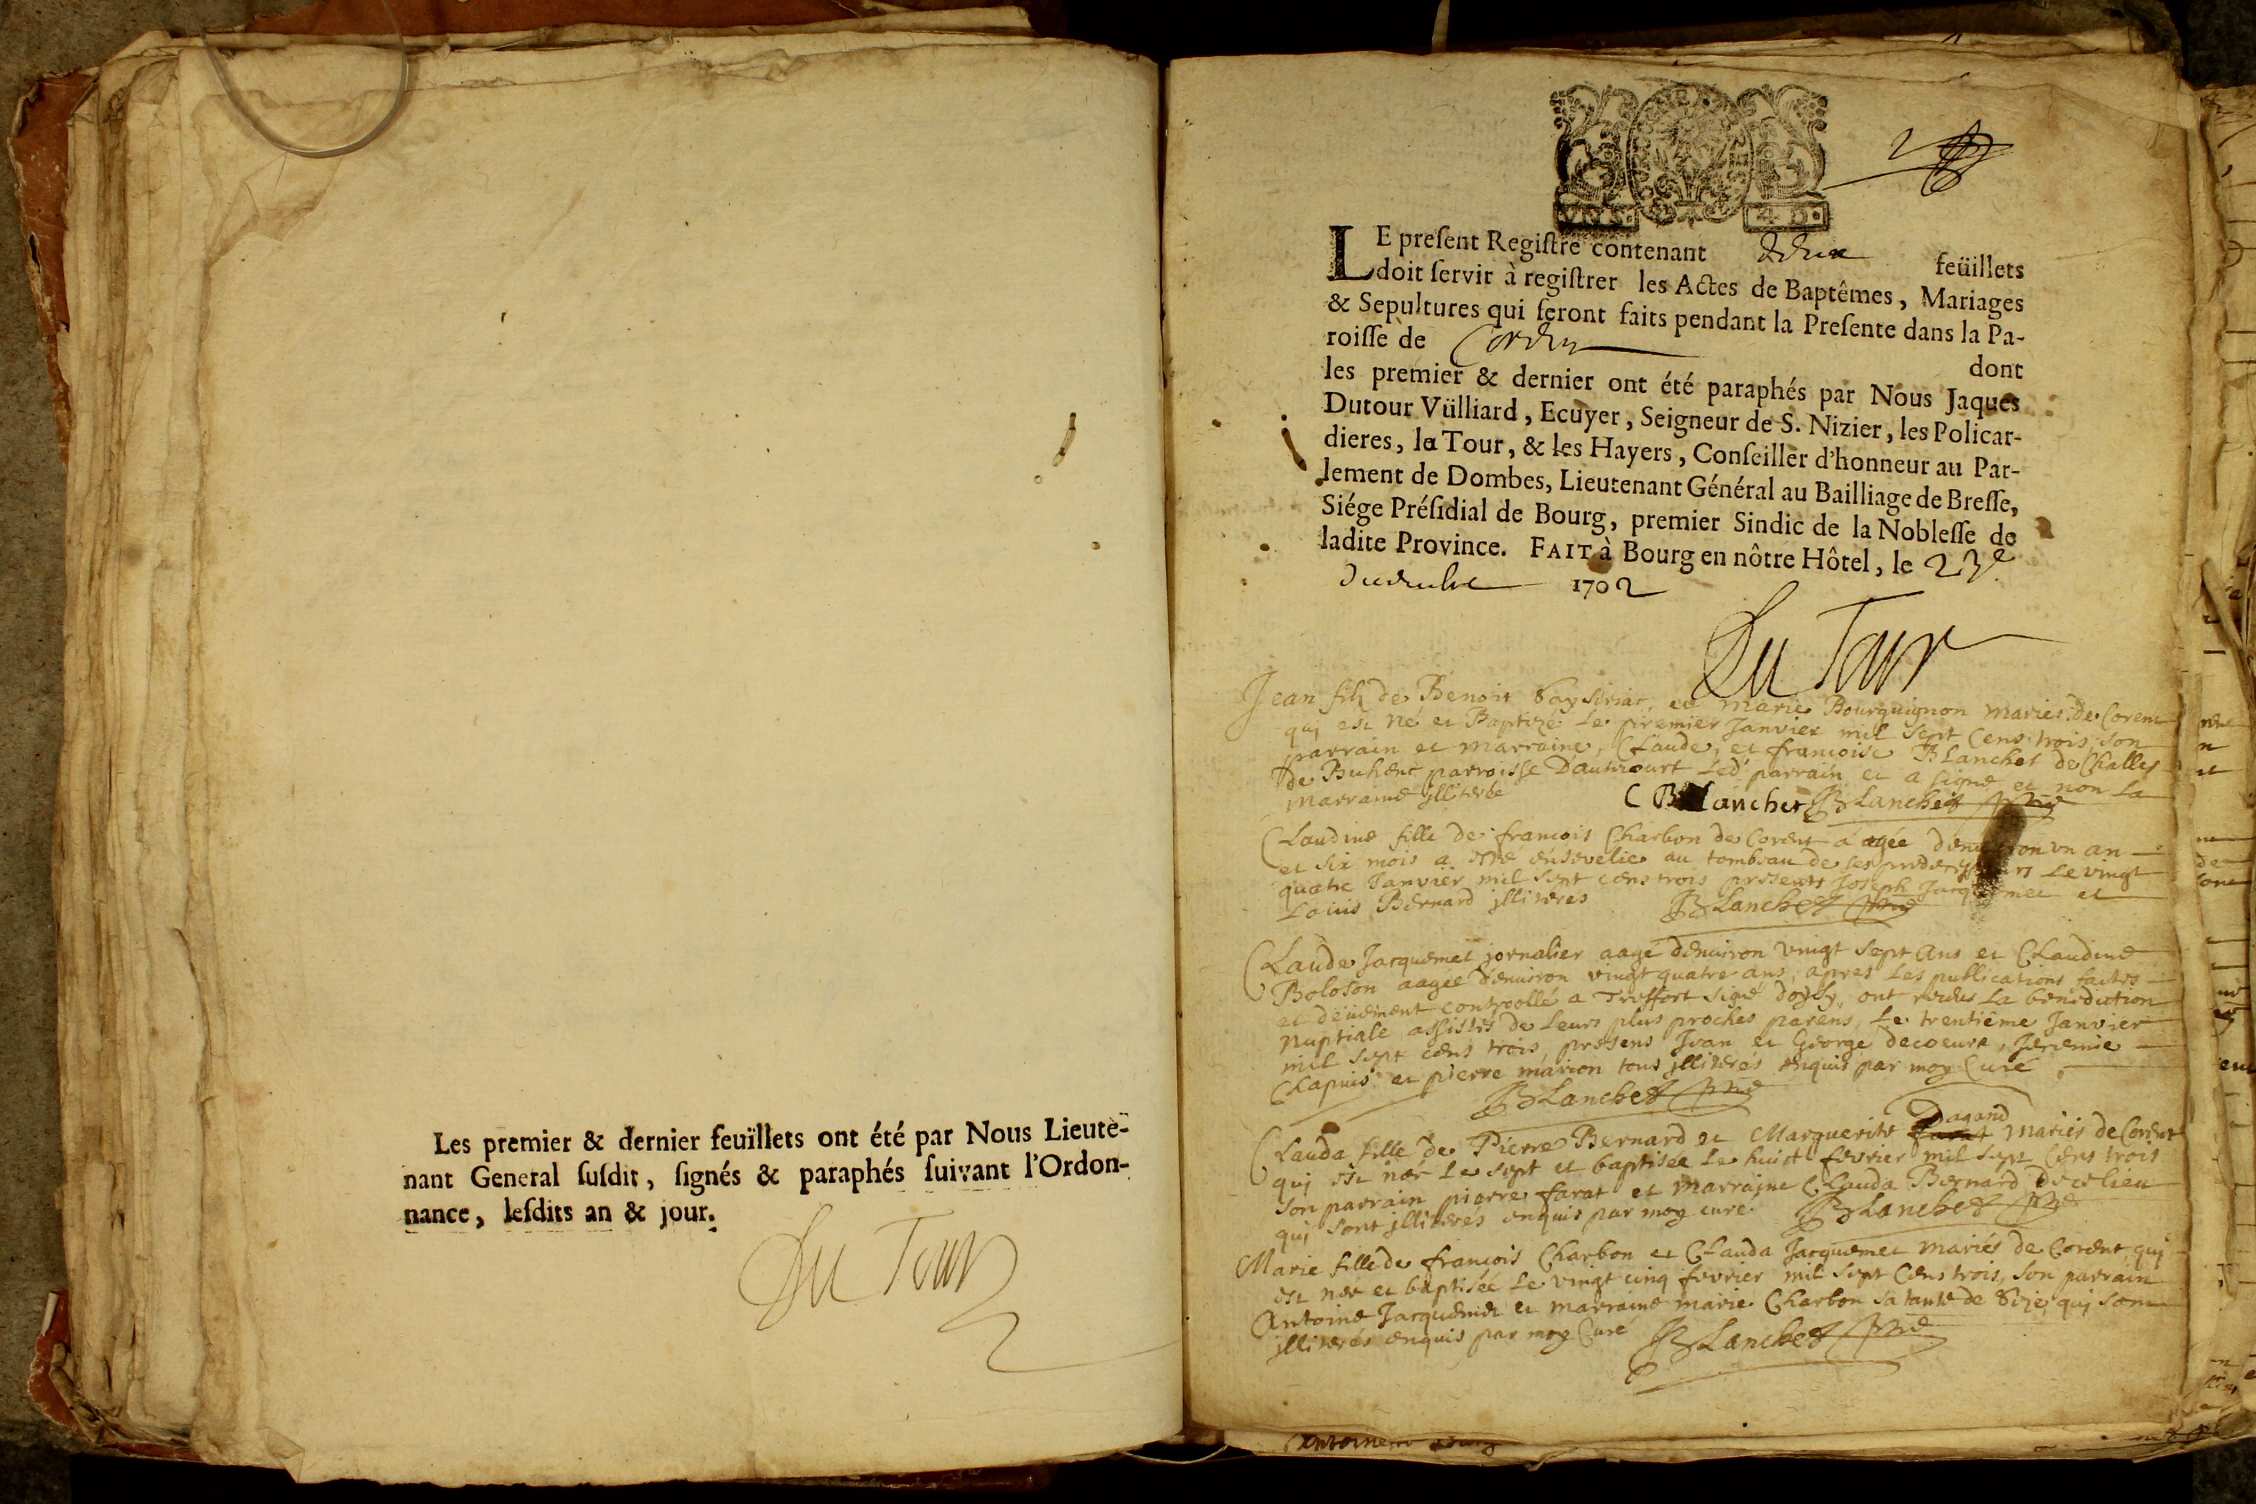 Les premier & dernier feuïllets ont été par Nous Lieute-
nant General ſuſdit, ſignés & paraphés ſuivant l'Ordon-
nance, leſdits an & jour.
Du Tour
2
4 D.
LE preſent Regiſtre contenant deux feüillets
doit ſervir à regiſtrer les Actes de Baptêmes, Mariages
& Sepultures qui ſeront faits pendant la Preſente dans la Pa-
roiſſe de dont
les premier & dernier ont été paraphés par Nous Jaques
Dutour Vülliard, Ecuyer, Seigneur de S. Nizier, les Policar-
dieres, la Tour, & les Hayers, Conſeiller d'honneur au Par-
lement de Dombes, Lieutenant Général au Bailliage de Breſſe,
Siége Préſidial de Bourg, premier Sindic de la Nobleſſe de
ladite Province. FAIT à Bourg en nôtre Hôtel, le 23e
1702
Du Tour
Jean filz de Benoit et Marie Bourguignon maries de Corent
qui est né et Baptizé le premier Janvier mil sept cens trois, son
parrain et marraine, Claude, et francoise Blanchet de Challes
de Buhenc parroisse Dautricourt led' parrain et a signé et non la
marraine illiterée C Blanchet Blanchet
Claudine fille de francois Charbon de Corent aagée denviron un an
et six mois a esté ensevelie au tombeau de ses predecesseurs le vingt
quatre Janvier mil sept cens trois presents Joseph Jacquemet et
Louis Bernard illiteres Blanchet
Claude Jacquemet jornalier aagé denviron vingt sept ans et Claudine
Boloson aagée denviron vingt quatre ans, apres les publications faites
et deüement controollé a Treffort signé ont receus la benediction
nuptiale assistés de leurs plus proches parens, le trentiême Janvier
mil sept cens trois, presens Jean et George decoeure, Jeremie
Chapuis et pierre marion tous illiterés enquis par moy Curé
Blanchet
Dagand
Clauda fille de Pierre Bernard et Marguerite mariés de Corent
qui est née le sept et baptisée le huict fevrier mil sept cens trois
son parrain pierre farat et marraine Clauda Bernard de ce lieu
qui sont illiterés enquis par moy curé. Blanchet
Marie fille de francois Charbon et Clauda Jacquemet mariés de Corent qui
est née et baptisée le vingt cinq fevrier mil sept cens trois, son parrain
Antoine Jacquemet et marraine marie Charbon sa tante de qui sont
illiterés enquis par moy Curé Blanchet